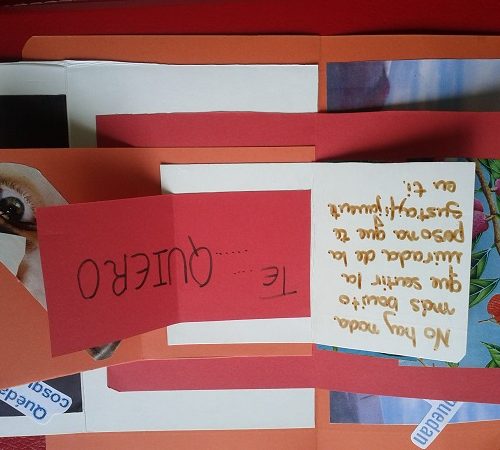 No hay nada.
más bonito
que sentir la
mirada de la
pesona que te
gusta, fijament
en ti.
TE ........
QUIERO
Quédan
cosqu
quedan